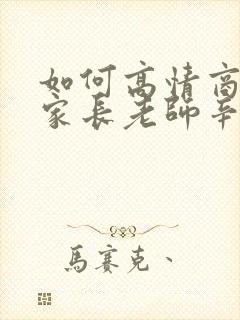 如何高情商
家長老師辛
馬賽克、